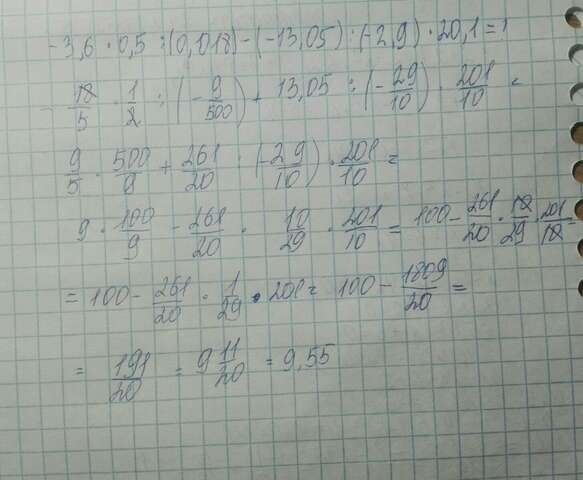 -3,6 · 0,5 : (0,018) - (-13,05) : (-2,9) · 20,1 =
- 18/5 · 1/2 : (- 9/500) + 13,05 : (- 29/10) · 201/10 =
9/5 · 500/9 + 261/20 : (- 29/10) · 201/10 =
9 · 100/9 - 261/20 · 10/29 · 201/10 = 100 - 261/20 · 10/29 · 201/10
= 100 - 261/20 · 1/29 · 201 = 100 - 1809/20 =
= 191/20 = 9 11/20 = 9,55